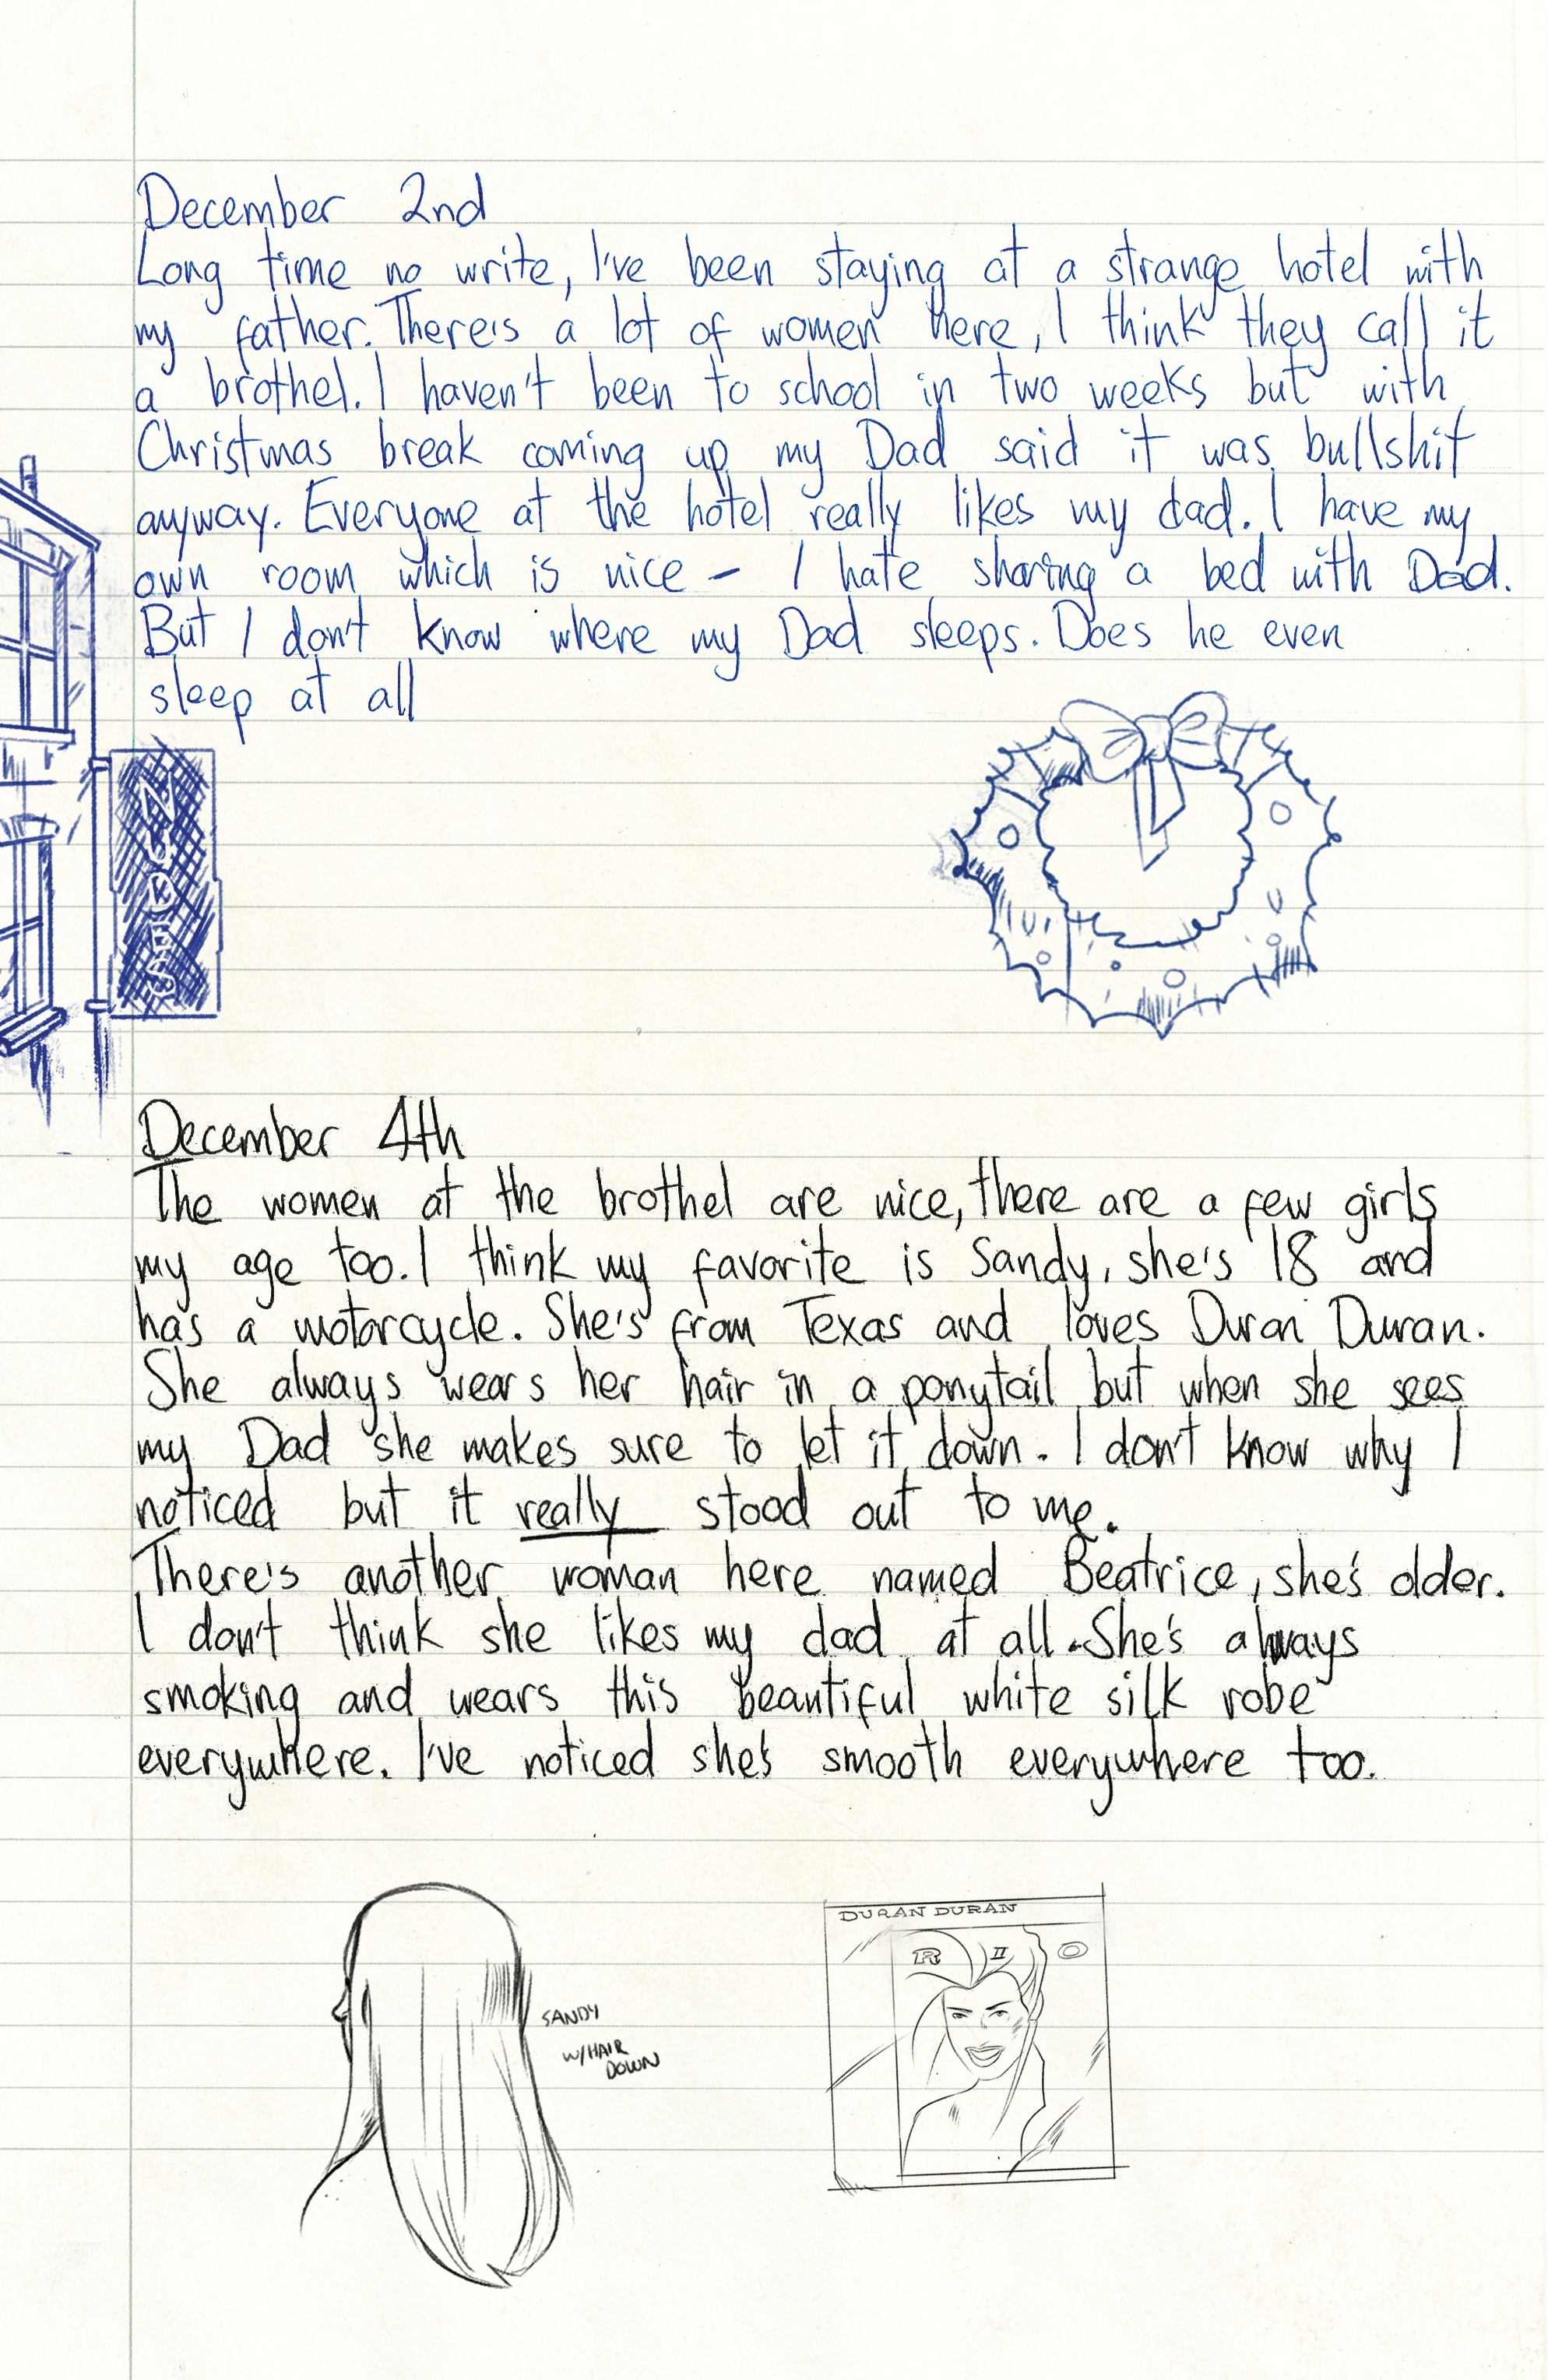 December 2nd
Long time no write, I've been staying at a strange hotel with
my father. There's a lot of women here, I think they call it
a brothel. I haven't been to school in two weeks but with
Christmas break coming up my Dad said it was bullshit
anyway. Everyone at the hotel really likes my dad. I have my
own room which is nice - I hate sharing a bed with Dad.
But I don't know where my Dad sleeps. Does he even
sleep at all
NUDES
December 4th
The women at the brothel are nice, there are a few girls
my age too. I think my favorite is Sandy, she's 18 and
has a motorcycle. She's from Texas and loves Duran Duran.
She always wears her hair in a ponytail but when she sees
my Dad she makes sure to let it down. I don't know why I
noticed but it really stood out to me.
There's another woman here named Beatrice, she's older.
I don't think she likes my dad at all. She's always
smoking and wears this beautiful white silk robe
everywhere. I've noticed she's smooth everywhere too.
SANDY
W/HAIR
DOWN
DURAN DURAN
R I O